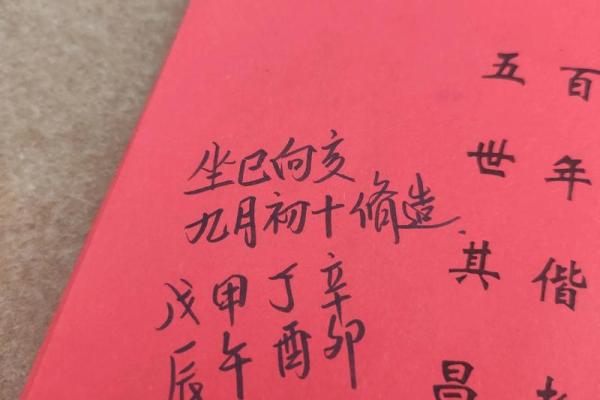 坐巳向亥
九月初十脩造
戊甲丁辛
辰午酉卯
百年偕
五世其昌